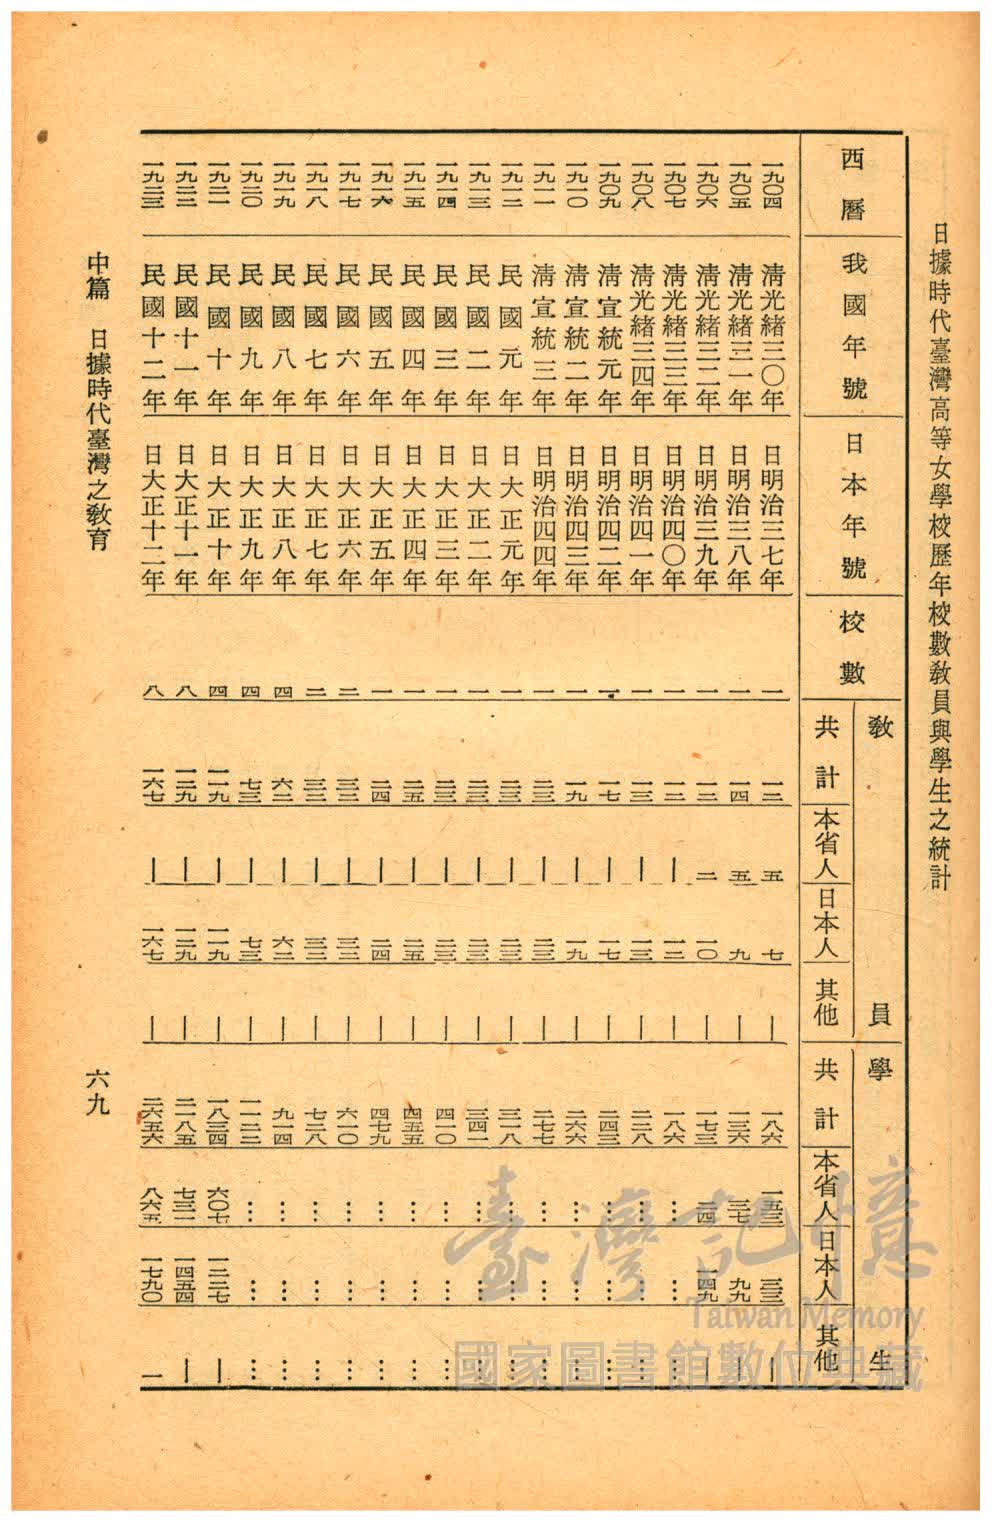 日據時代臺灣高等女學校歷年校數教員與學生之統計
西曆 我國年號 日本年號 校數 教員 學生
共計 本省人 日本人 其他 共計 本省人 日本人 其他
一九〇四 清光緒三〇年 日明治三七年 一 一二 五 七 — 一八六 一五三 三三 —
一九〇五 清光緒三一年 日明治三八年 一 一四 五 九 — 一三六 三七 九九 —
一九〇六 清光緒三二年 日明治三九年 一 一二 二 一〇 — 一七三 二四 一四九 —
一九〇七 清光緒三三年 日明治四〇年 一 一二 — 一二 — 一八六 … … …
一九〇八 清光緒三四年 日明治四一年 一 一三 — 一三 — 二二八 … … …
一九〇九 清宣統元年 日明治四二年 一 一七 — 一七 — 二四三 … … …
一九一〇 清宣統二年 日明治四三年 一 一九 — 一九 — 二六六 … … …
一九一一 清宣統三年 日明治四四年 一 二三 — 二三 — 二七七 … … …
一九一二 民國元年 日大正元年 一 二三 — 二三 — 三一八 … … …
一九一三 民國二年 日大正二年 一 二三 — 二三 — 三四一 … … …
一九一四 民國三年 日大正三年 一 二三 — 二三 — 四一〇 … … …
一九一五 民國四年 日大正四年 一 二五 — 二五 — 四五五 … … …
一九一六 民國五年 日大正五年 一 二四 — 二四 — 四七九 … … …
一九一七 民國六年 日大正六年 二 三三 — 三三 — 六一〇 … … …
一九一八 民國七年 日大正七年 二 三二 — 三二 — 七二八 … … …
一九一九 民國八年 日大正八年 四 六二 — 六二 — 九一四 … … …
一九二〇 民國九年 日大正九年 四 七三 — 七三 — 一一二二 … … …
一九二一 民國十年 日大正十年 四 一一九 — 一一九 — 一八三四 六〇七 一二二七 —
一九二二 民國十一年 日大正十一年 八 一二九 — 一二九 — 二一八五 七三一 一四五四 —
一九二三 民國十二年 日大正十二年 八 一六七 — 一六七 — 二六五六 八六五 一七九〇 一
中篇 日據時代臺灣之教育
六九
臺灣記憶
Taiwan Memory
國家圖書館數位典藏